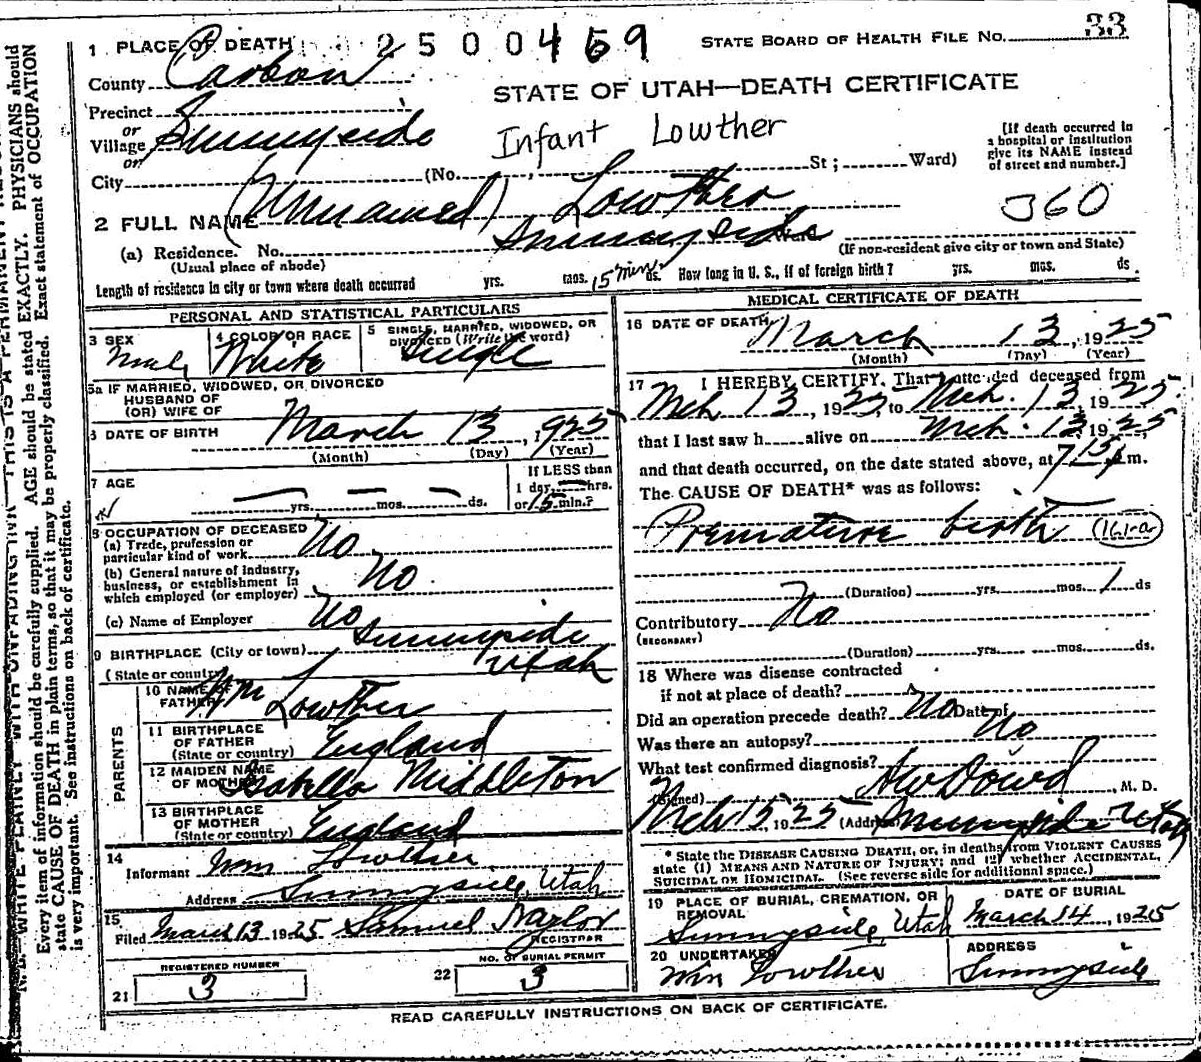 1 PLACE OF DEATH 2500459 STATE BOARD OF HEALTH FILE No. 33
County Carbon
STATE OF UTAH—DEATH CERTIFICATE
Precinct
or
Village Sunnyside
or
Infant Lowther
[If death occurred in
a hospital or institution
give its NAME instead
of street and number.]
City (No. , St; Ward)
2 FULL NAME (Unnamed) Lowther
J60
(a) Residence. No. Sunnyside Ward (If non-resident give city or town and State)
(Usual place of abode)
Length of residence in city or town where death occurred yrs. mos. 15 min ds. How long in U. S., if of foreign birth? yrs. mos. ds.
PERSONAL AND STATISTICAL PARTICULARS
3 SEX Male
4 COLOR OR RACE White
5 SINGLE, MARRIED, WIDOWED, OR
DIVORCED (Write the word) Single
5a IF MARRIED, WIDOWED, OR DIVORCED
HUSBAND OF
(OR) WIFE OF
6 DATE OF BIRTH March 13, 1925
(Month) (Day) (Year)
7 AGE — yrs. — mos. — ds.
If LESS than
1 day — hrs.
or 15 min.?
8 OCCUPATION OF DECEASED
(a) Trade, profession or
particular kind of work No
(b) General nature of industry,
business, or establishment in
which employed (or employer) No
(c) Name of Employer No
9 BIRTHPLACE (City or town) Sunnyside
(State or country) Utah
PARENTS
10 NAME OF
FATHER Wm Lowther
11 BIRTHPLACE
OF FATHER
(State or country) England
12 MAIDEN NAME
OF MOTHER Isabella Middleton
13 BIRTHPLACE
OF MOTHER
(State or country) England
14
Informant Wm Lowther
Address Sunnyside Utah
15
Filed March 13 1925 Samuel Naylor
REGISTRAR
REGISTERED NUMBER
21 3
NO. OF BURIAL PERMIT
22 3
MEDICAL CERTIFICATE OF DEATH
16 DATE OF DEATH March 13, 1925
(Month) (Day) (Year)
17 I HEREBY CERTIFY, That I attended deceased from
Mch 13, 1925, to Mch. 13, 1925.
that I last saw h alive on Mch. 13, 1925
and that death occurred, on the date stated above, at 7 15 p m.
The CAUSE OF DEATH* was as follows:
Premature birth (161-a)
(Duration) yrs. mos. 1 ds
Contributory No
(SECONDARY)
(Duration) yrs. mos. ds.
18 Where was disease contracted
if not at place of death?
Did an operation precede death? No Date of
Was there an autopsy? No
What test confirmed diagnosis?
(Signed) AW Dowd, M. D.
Mch 13, 1925 (Address) Sunnyside Utah
* State the DISEASE CAUSING DEATH, or, in deaths from VIOLENT CAUSES
state (1) MEANS AND NATURE OF INJURY; and (2) whether ACCIDENTAL,
SUICIDAL or HOMICIDAL. (See reverse side for additional space.)
19 PLACE OF BURIAL, CREMATION, OR
REMOVAL
Sunnyside, Utah
DATE OF BURIAL
March 14, 1925
20 UNDERTAKER
Wm Lowther
ADDRESS
Sunnyside
READ CAREFULLY INSTRUCTIONS ON BACK OF CERTIFICATE.
N. B. WRITE PLAINLY WITH UNFADING INK—THIS IS A PERMANENT
Every item of information should be carefully supplied. AGE should be stated EXACTLY. PHYSICIANS should
state CAUSE OF DEATH in plain terms, so that it may be properly classified. Exact statement of OCCUPATION
is very important. See instructions on back of certificate.